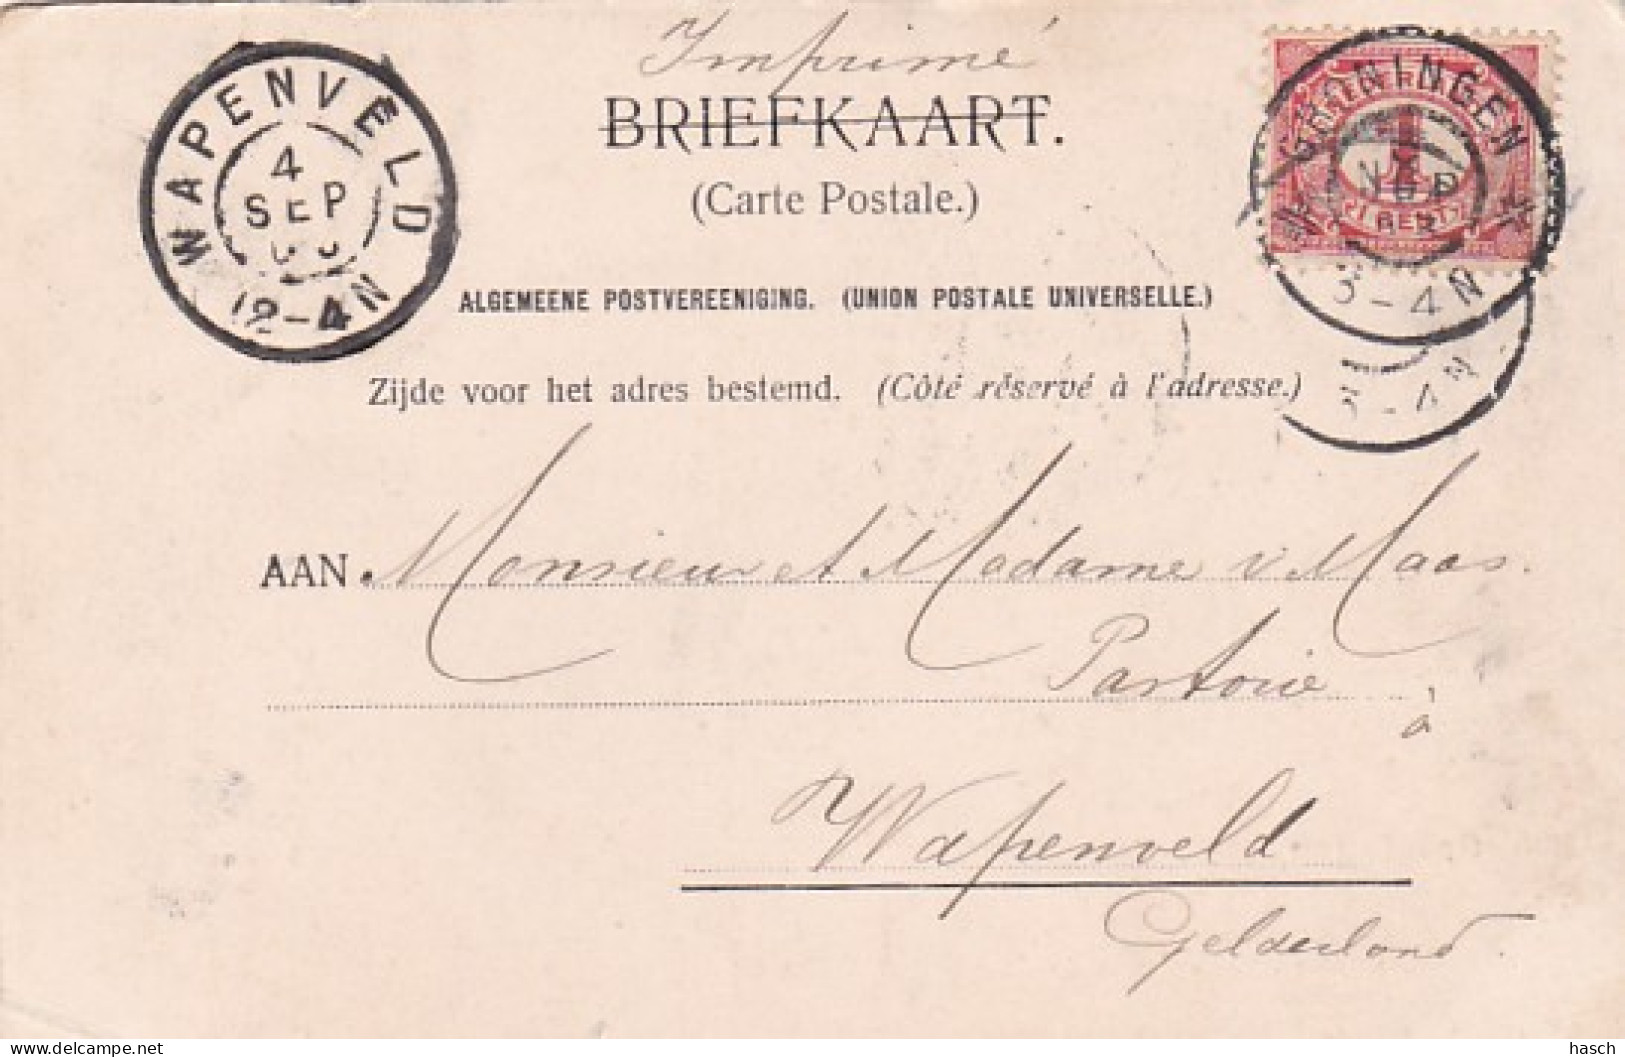 Imprimé
BRIEFKAART.
(Carte Postale.)
WAPENVELD
4
SEP
12-4N
GRONINGEN
SEP
3-4N
1
3-4N
ALGEMEENE POSTVEREENIGING. (UNION POSTALE UNIVERSELLE.)
Zijde voor het adres bestemd. (Côté réservé à l'adresse.)
AAN Monsieur et Madame v Maas.
Pastorie
à
Wapenveld.
Gelderland.
delcampe.net
hasch